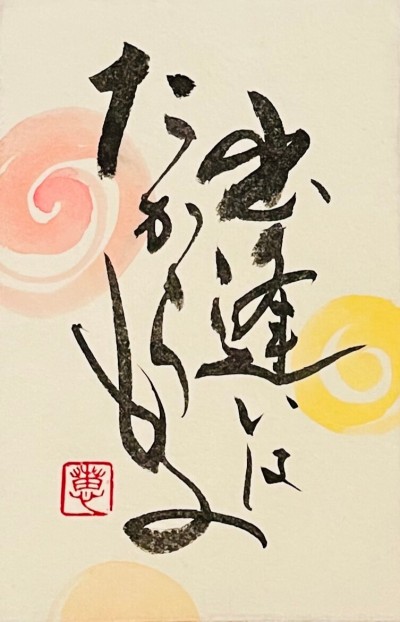 出逢いは
たからもの